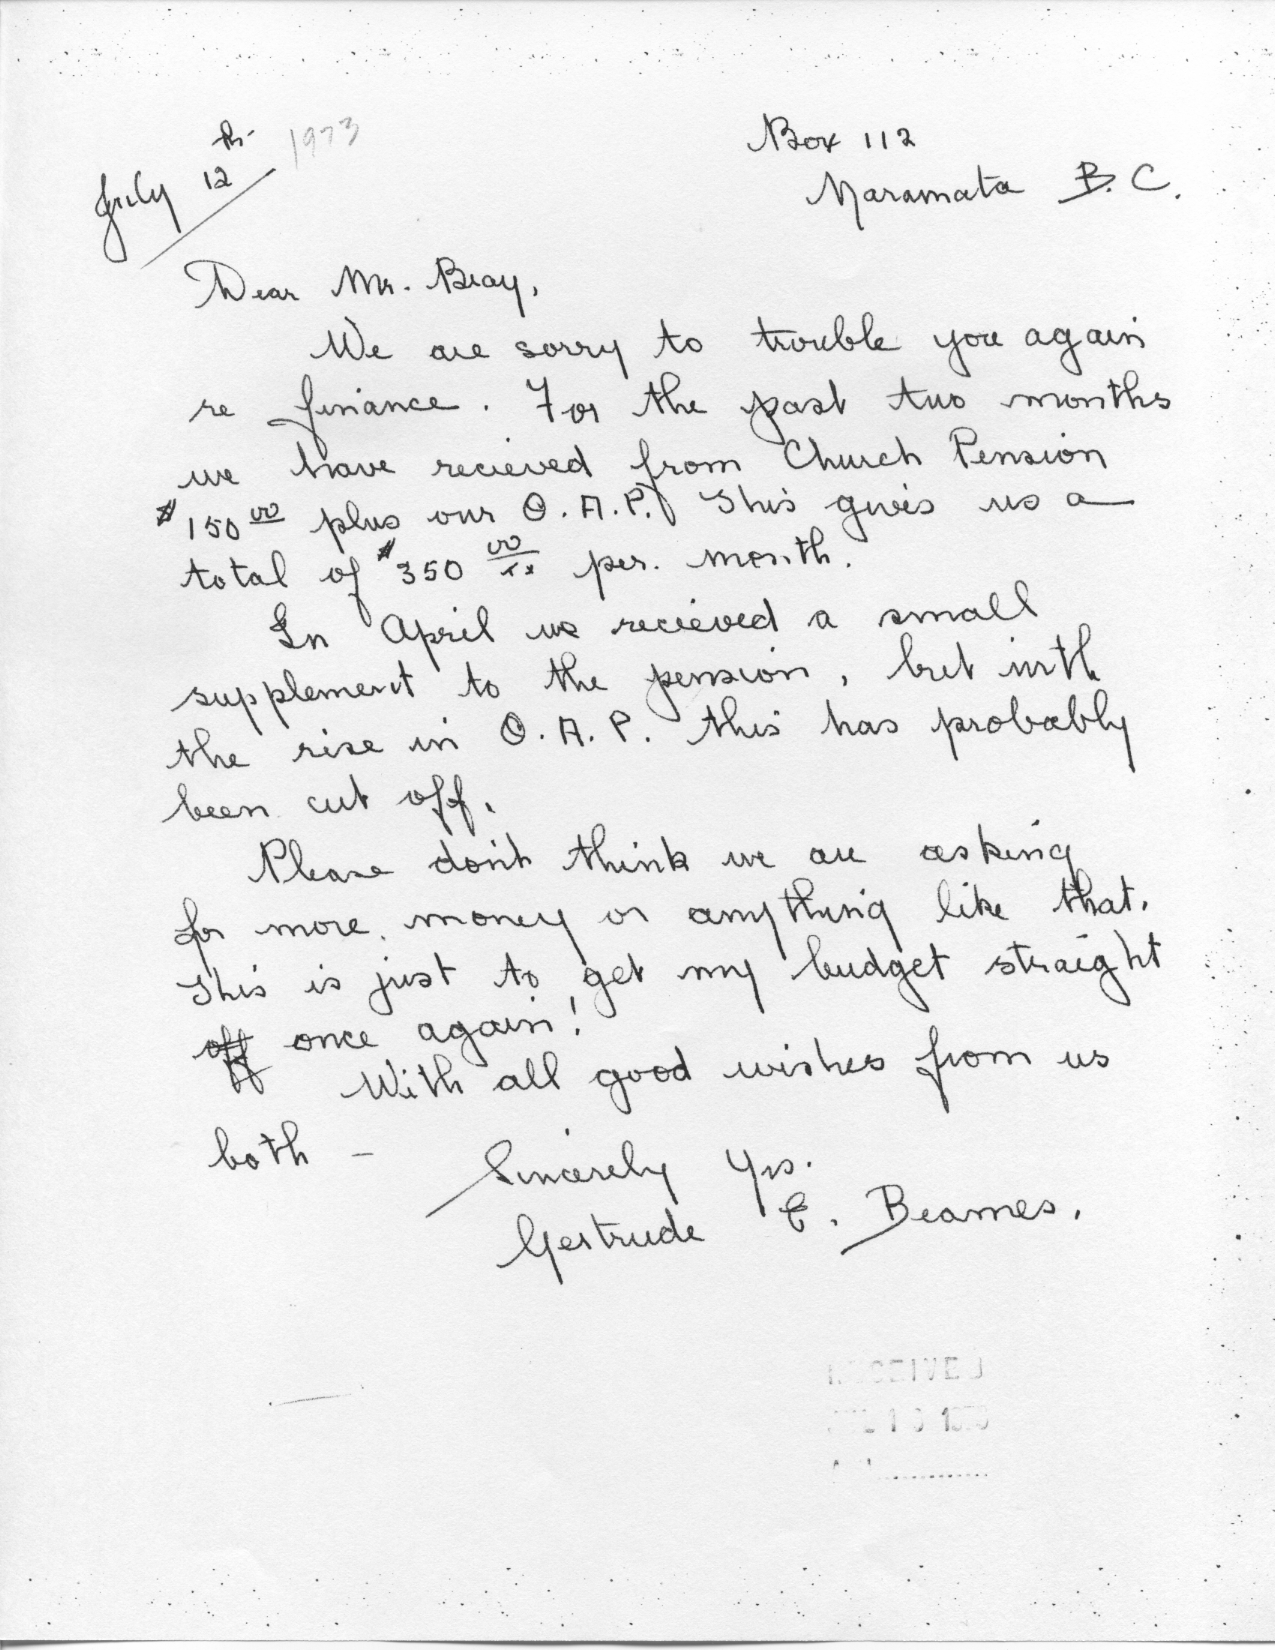 July 12th 1973
Box 112
Naramata B.C.
Dear Mr. Bray,
We are sorry to trouble you again
re finance. For the past two months
we have recieved from Church Pension
$150 00 plus our O.A.P. This gives us a
total of $350 00/xx per. month.
In April we recieved a small
supplement to the pension, but with
the rise in O.A.P. this has probably
been cut off.
Please don't think we are asking
for more money or anything like that.
This is just to get my budget straight
off once again!
With all good wishes from us
both –
Sincerely Yrs.
Gertrude E. Beames.
RECEIVED